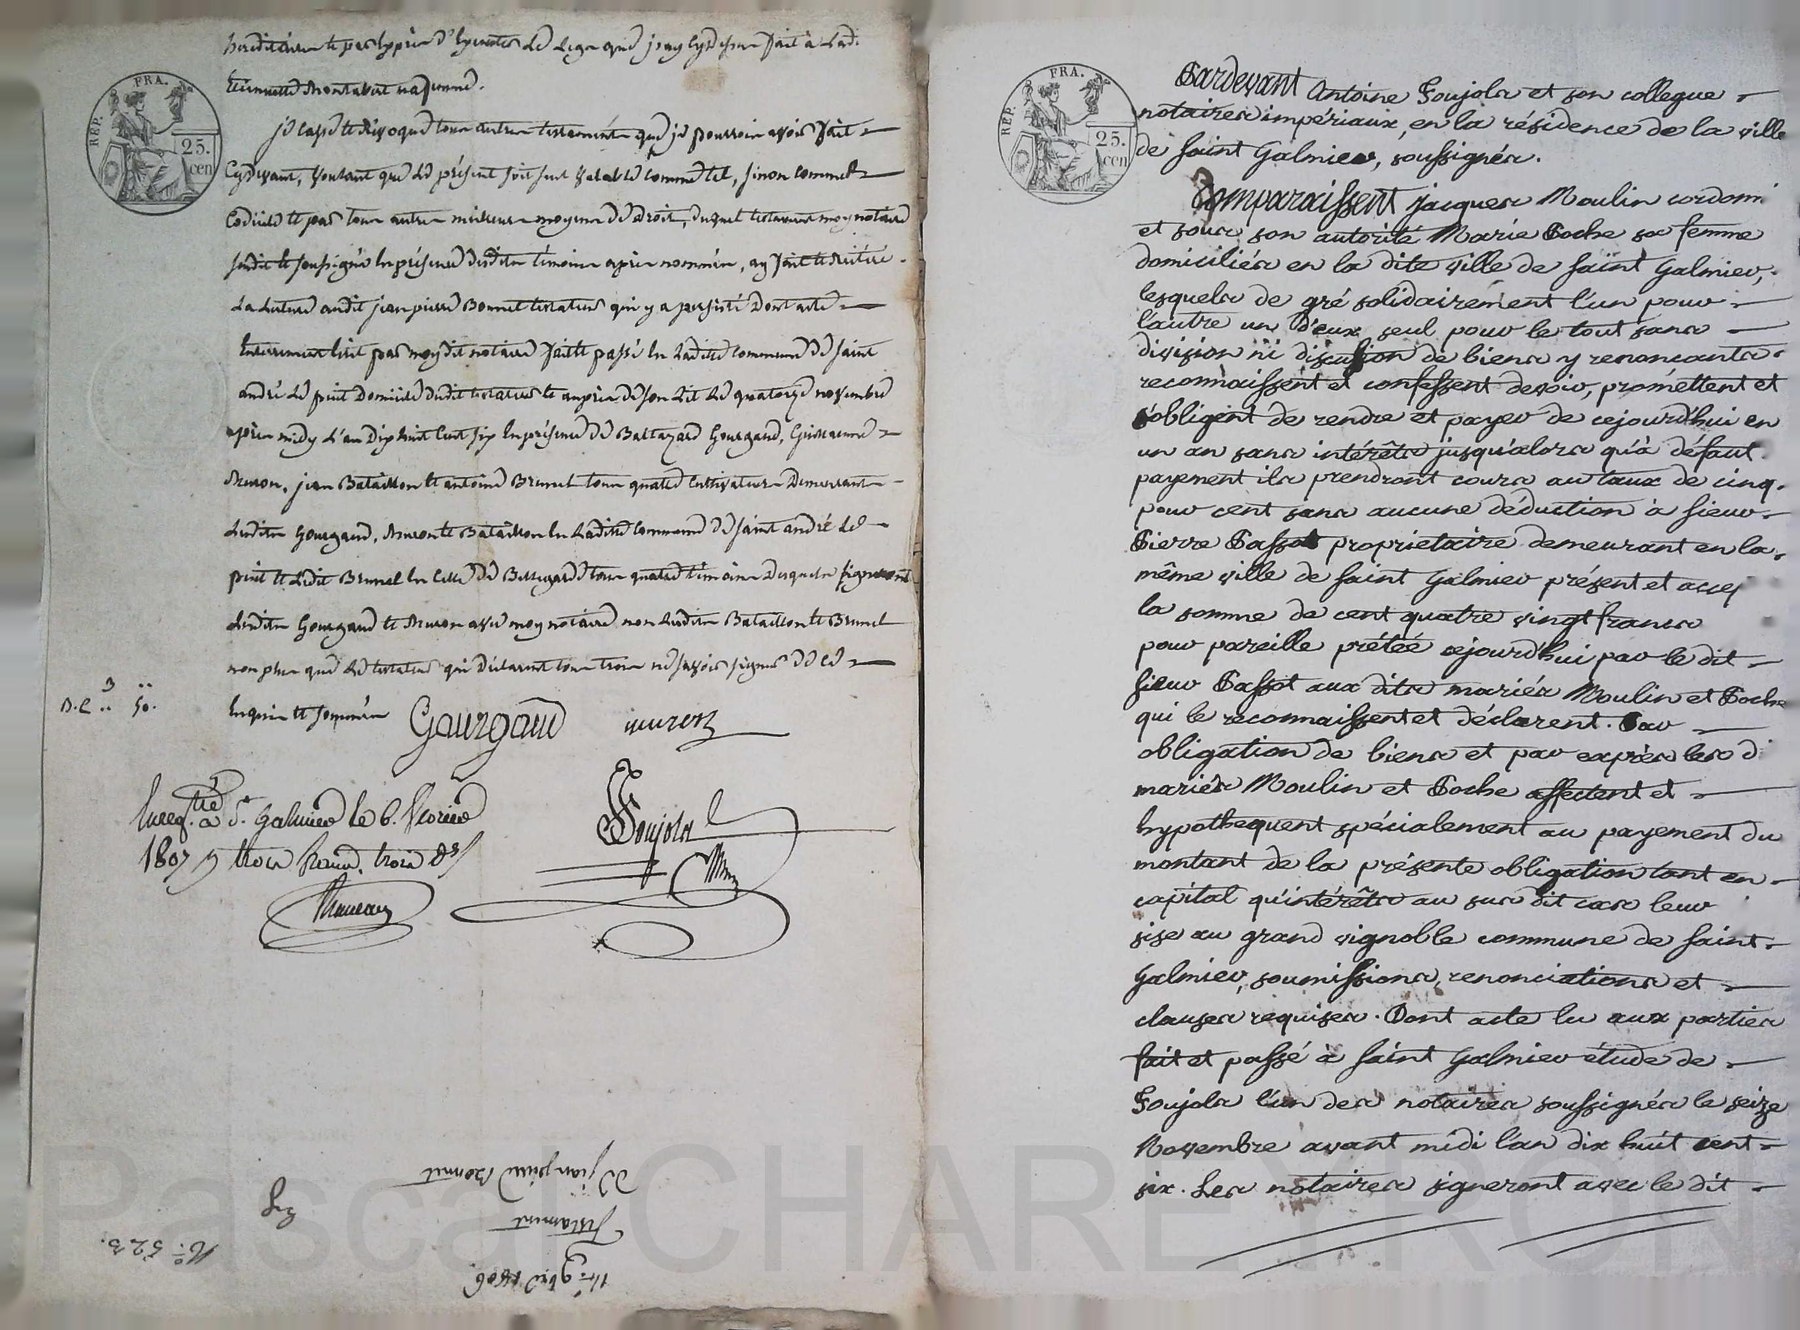 héréditaire et par hyppo d'hyceuter le legs que j'ay cydessus fait à ladte
Etiennette Montabert ma femme.
REP. FRA.
25. cen
je casse et révoque tous autres testaments que je pourrois avoir fait
Cydevant, voulant que le présent soit seul valable comme tel, sinon comme
Codicile et par tous autres meilleurs moyens de droit, duquel testament moy notaire
susdit et soussigné en présence desdits témoins après nommés, ay fait et réitéré
La lecture audit jean pierre Bonnet testateur qui y a persisté Dont acte
Entièrement écrit par moy dit notaire fait et passé en ladite commune de saint
andré le puit Domicile dudit testateur et auprès de son lit le quatorze novembre
après midy l'an Dix huit Cent six En présence de Baltazard Gourgaud, Guillaume
Muron, jean Bataillon et antoine Brunel tous quatre Cultivateurs Demeurant
Lesdits Gourgaud, Muron et Bataillon en Ladite Commune de saint andré le
puit et Ledit Brunel en Celle de Bellegarde tous quatre témoins Desquels signeront
Lesdits Gourgaud et Muron avec moy notaire non Lesdits Bataillon et Brunel
non plus que Le testateur qui déclarent tous trois ne savoir signer de ce
Enquis et sommés
D.C 3 .. 50.
Gourgaud muron
Enregtré à St. Galmier le 6. février
1807 trois francs, trois ds/
Foujols
Nre
Testament
De jean pierre Bonnet
14. 9bre 1806
No. 523.
REP. FRA.
25. cen
Pardevant Antoine Foujols et son collegue
notaires impériaux, en la résidence de la ville
de saint Galmier, soussignés.
Comparaissent jacques Moulin cordonni
et sous son autorité Marie Poche sa femme
domiciliés en la dite ville de saint Galmier,
lesquels de gré solidairement l'un pour
l'autre un d'eux seul pour le tout sans
division ni discussion de biens y renonçants
reconnaissent et confessent devoir, promettent et
s'obligent de rendre et payer de cejourd'hui en
un an sans intérêts jusqu'alors qu'à défaut
payement ils prendront cours au taux de cinq
pour cent sans aucune déduction à sieur
Pierre Passot propriétaire demeurant en la
même ville de saint Galmier présent et accep
la somme de cent quatre vingt francs
pour pareille prêtée cejourd'hui par le dit
sieur Passot aux dits mariés Moulin et Poche
qui le reconnaissent et déclarent. Par
obligation de biens et par exprès les d
mariés Moulin et Poche affectent et
hypothequent spécialement au payement du
montant de la présente obligation tant en
capital qu'intérêts au sus dit cas leur
sise au grand vignoble commune de saint
Galmier, soumissions, renonciations et
clauses requises. Dont acte lu aux parties
fait et passé à saint Galmier étude de
Foujols l'un des notaires soussignés le seize
Novembre avant midi l'an dix huit cent
six. Les notaires signeront avec le dit
Pascal CHAREYRON